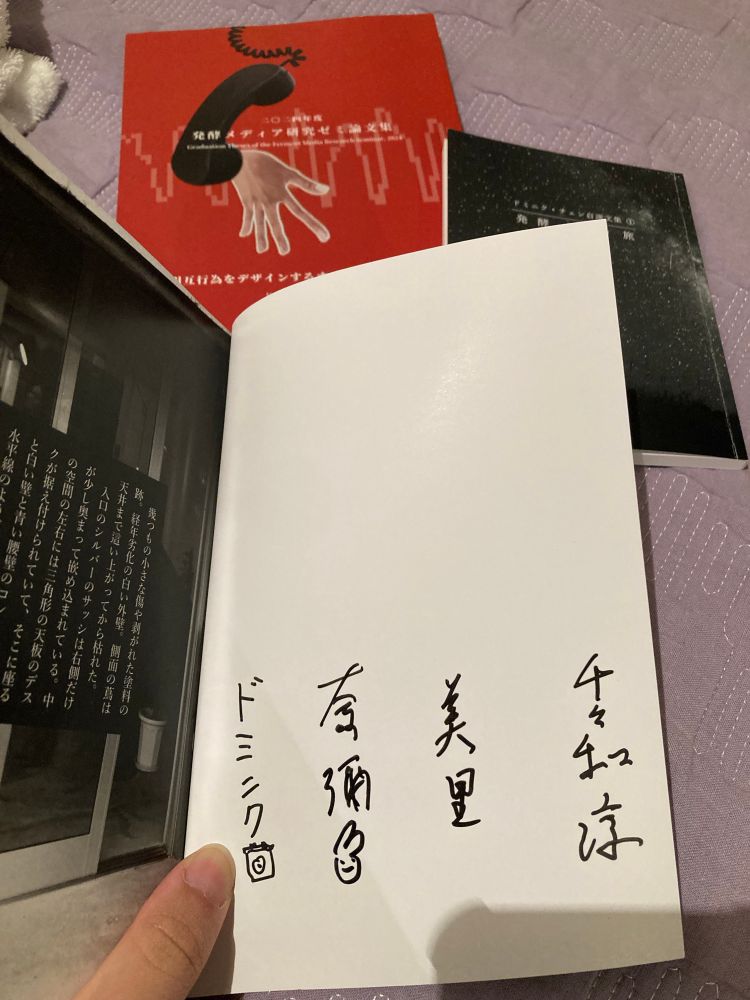 二〇二四年度
発酵メディア研究ゼミ論文集
Graduation Theses of the Ferment Media Research Seminar, 2024
相互行為をデザインする
ドミニク・チェン自選文集①
発酵
旅
幾つもの小さな傷や剥がれた塗料の
跡。経年劣化の白い外壁。側面の蔦は
天井まで這い上がってから枯れた。
入口のシルバーのサッシは右側だけ
が少し奥まって嵌め込まれている。中
の空間の左右には三角形の天板のデス
クが据え付けられていて、そこに座る
と白い壁と青い腰壁のコン
水平線のよ
美里
ドミニク